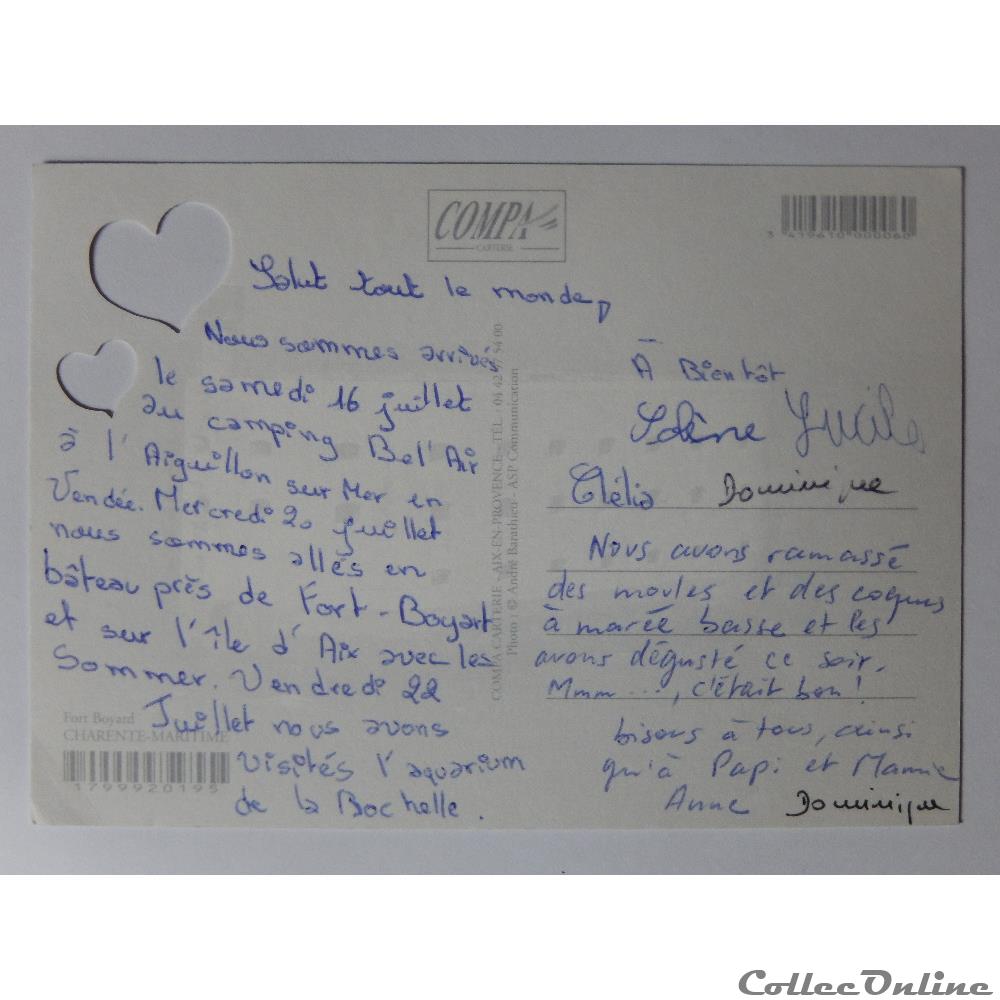 COMPA
CARTERIE
3 419610 000060
Salut tout le monde,
Nous sommes arrivés
le samedi 16 juillet
au camping Bel'Air
à l'Aiguillon sur Mer en
Vendée. Mercredi 20 juillet
nous sommes allés en
bâteau près de Fort-Boyart
et sur l'île d'Aix avec les
Sommer. Vendredi 22
Juillet nous avons
visités l'aquarium
de la Rochelle.
Fort Boyard
CHARENTE-MARITIME
1799920195
COMPA CARTERIE - AIX-EN-PROVENCE - TÉL. : 04 42 97 54 00
Photo : © André Barathieu - ASP Communication
À Bientôt
Solène Lucile
Clélia Dominique
Nous avons ramassé
des moules et des coques
à marée basse et les
avons dégusté ce soir.
Mmm..., c'était bon!
bisous à tous, ainsi
qu'à Papi et Mamie
Anne Dominique
CollecOnline